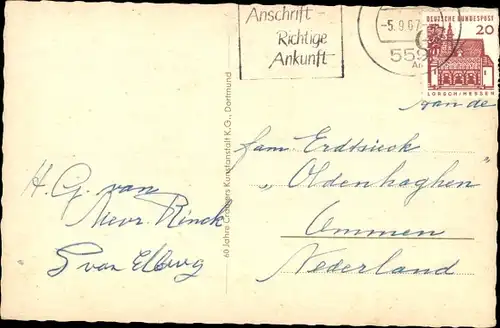 Anschrift
Richtige
Ankunft
-5.9.67-
559
DEUTSCHE BUNDESPOST
20
LORSCH/HESSEN
Aan de
fam Erdtsieck
"Oldenhaghen"
Ommen
Nederland
60 Jahre Cramers Kunstanstalt K.G., Dortmund
H. G. van
Mevr. Rinck
S van Elburg